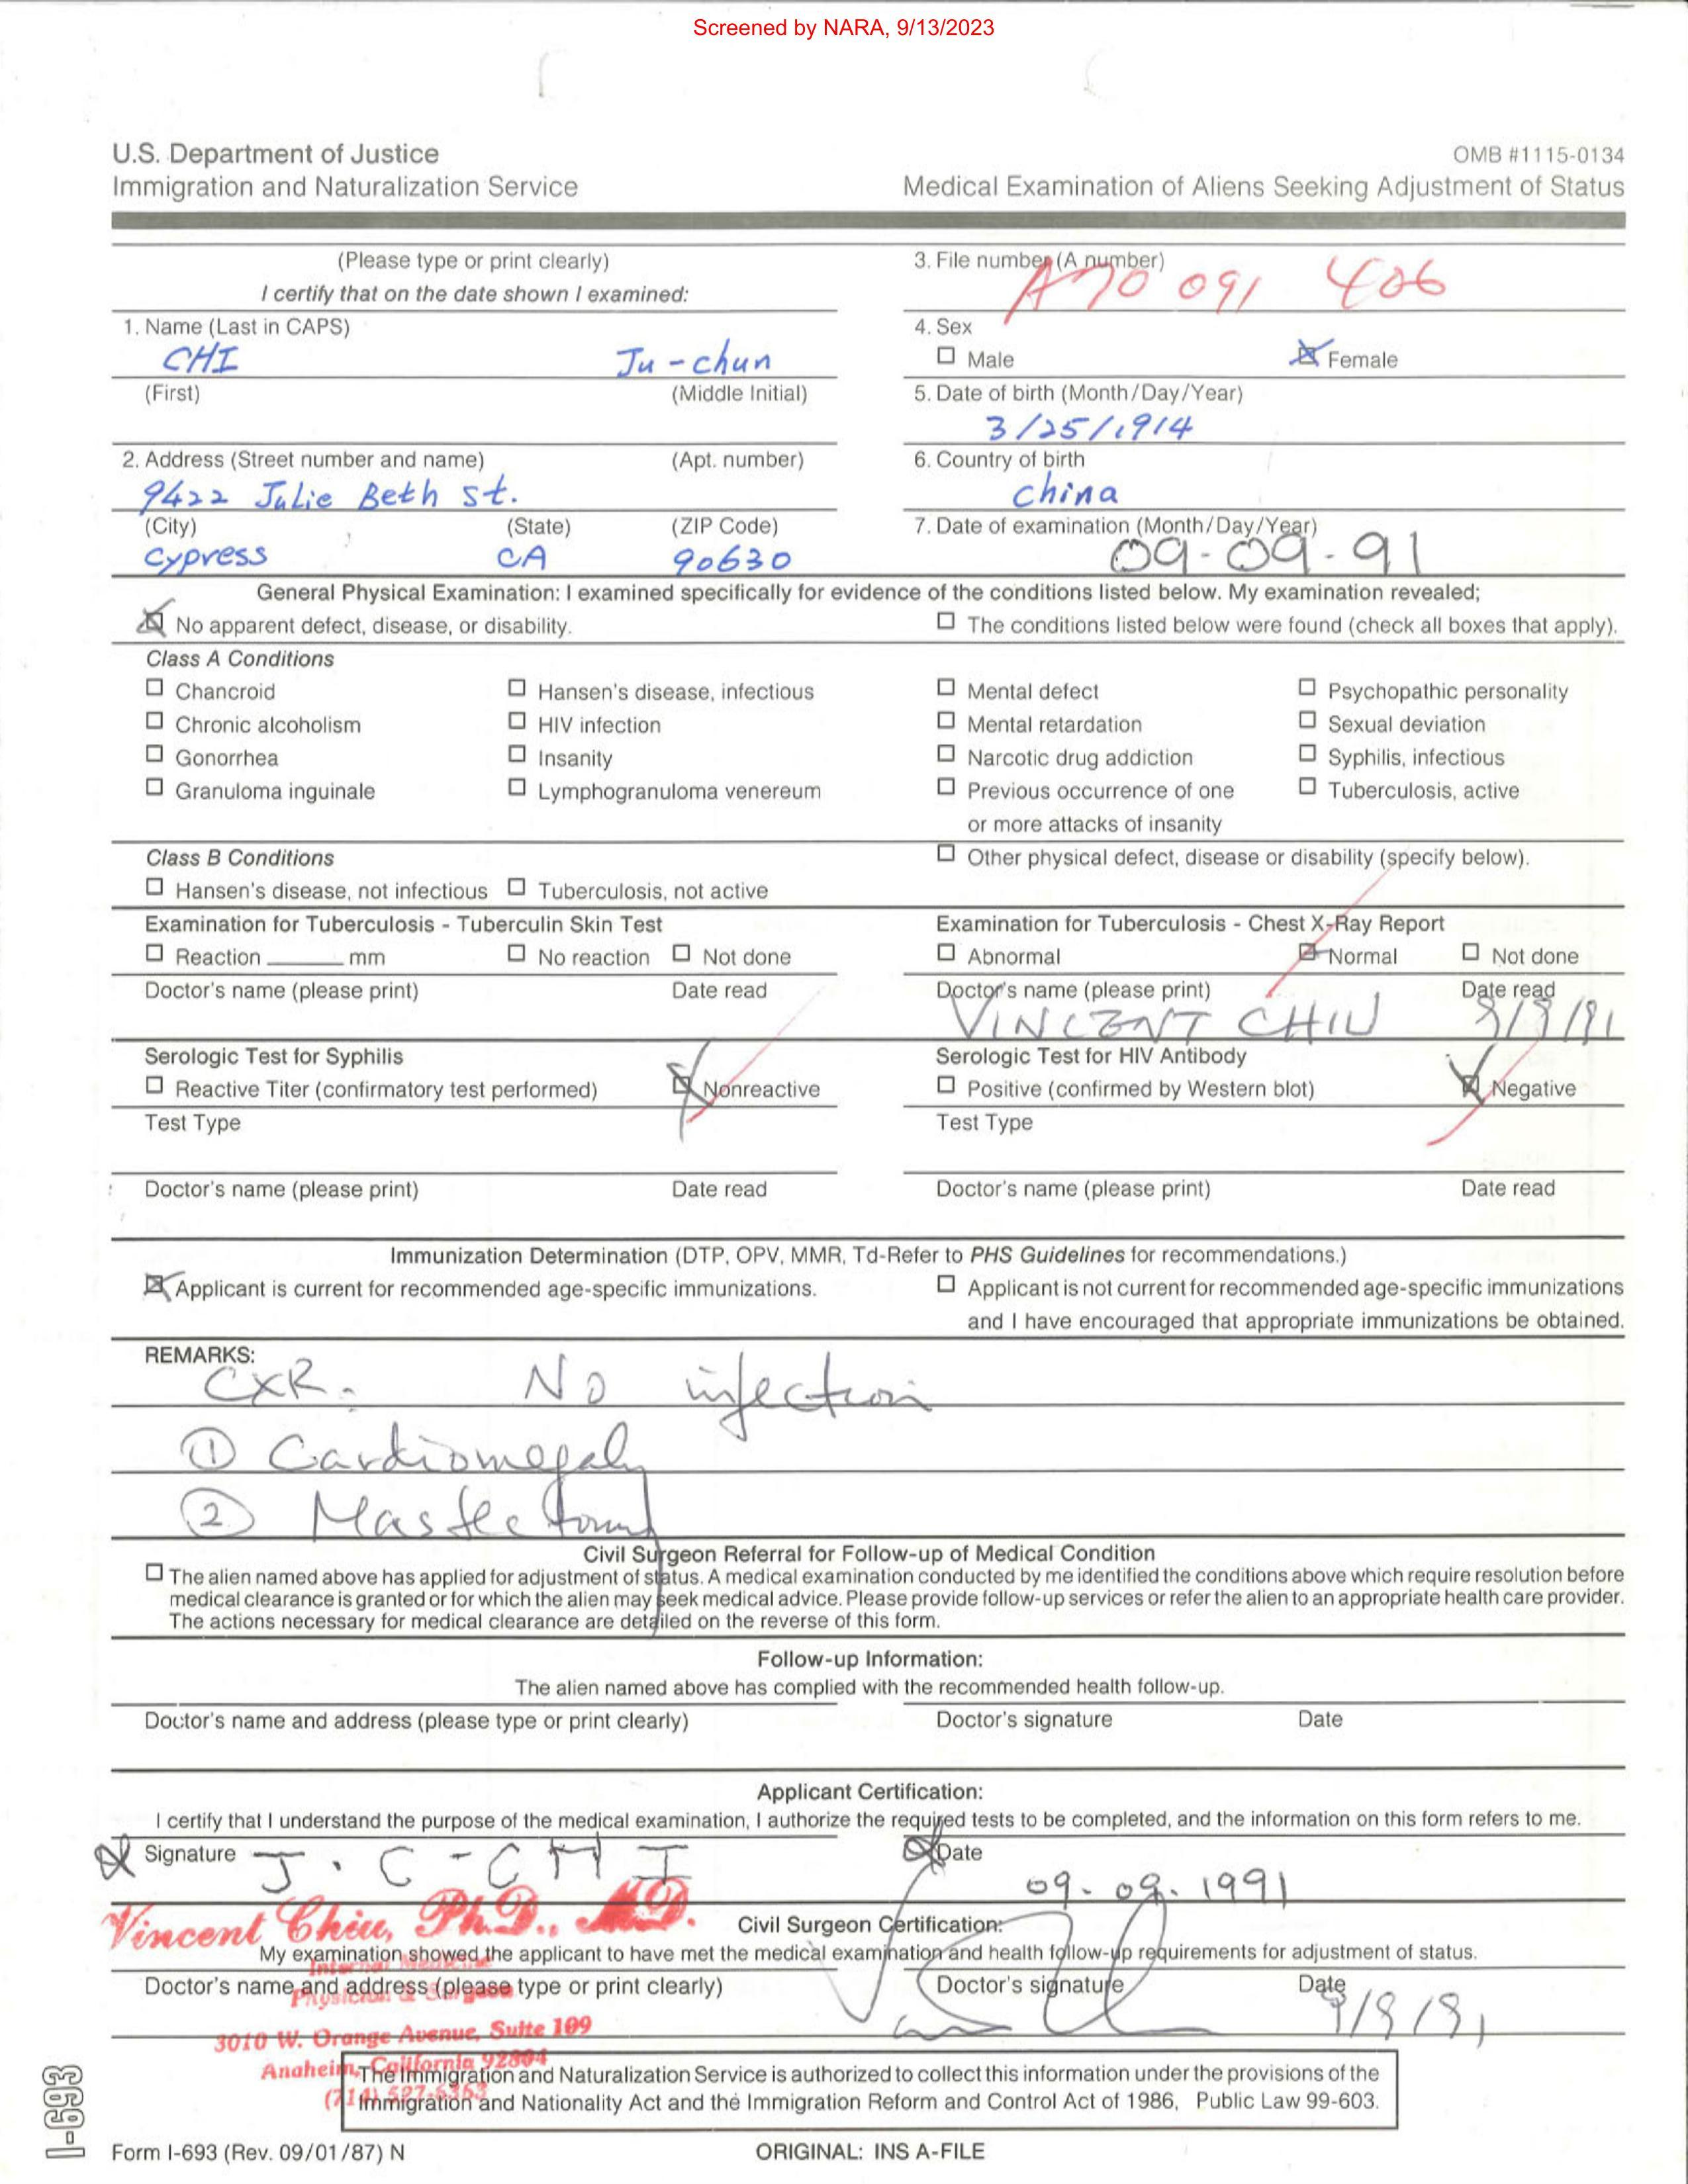 Screened by NARA, 9/13/2023
U.S. Department of Justice
Immigration and Naturalization Service
OMB #1115-0134
Medical Examination of Aliens Seeking Adjustment of Status
(Please type or print clearly)
I certify that on the date shown I examined:
3. File number (A number)
A70 091 406
1. Name (Last in CAPS)
CHI Ju-chun
(First) (Middle Initial)
4. Sex
☐ Male ☒ Female
5. Date of birth (Month/Day/Year)
3/25/1914
2. Address (Street number and name) (Apt. number)
9422 Julie Beth st.
6. Country of birth
china
(City) (State) (ZIP Code)
cypress CA 90630
7. Date of examination (Month/Day/Year)
09-09-91
General Physical Examination: I examined specifically for evidence of the conditions listed below. My examination revealed;
☒ No apparent defect, disease, or disability. ☐ The conditions listed below were found (check all boxes that apply).
Class A Conditions
☐ Chancroid ☐ Hansen's disease, infectious ☐ Mental defect ☐ Psychopathic personality
☐ Chronic alcoholism ☐ HIV infection ☐ Mental retardation ☐ Sexual deviation
☐ Gonorrhea ☐ Insanity ☐ Narcotic drug addiction ☐ Syphilis, infectious
☐ Granuloma inguinale ☐ Lymphogranuloma venereum ☐ Previous occurrence of one ☐ Tuberculosis, active
or more attacks of insanity
Class B Conditions ☐ Other physical defect, disease or disability (specify below).
☐ Hansen's disease, not infectious ☐ Tuberculosis, not active
Examination for Tuberculosis - Tuberculin Skin Test
☐ Reaction ______ mm ☐ No reaction ☐ Not done
Doctor's name (please print) Date read
Examination for Tuberculosis - Chest X-Ray Report
☐ Abnormal ☒ Normal ☐ Not done
Doctor's name (please print) Date read
VINCENT CHIU 9/9/91
Serologic Test for Syphilis
☐ Reactive Titer (confirmatory test performed) ☒ Nonreactive
Test Type
Doctor's name (please print) Date read
Serologic Test for HIV Antibody
☐ Positive (confirmed by Western blot) ☒ Negative
Test Type
Doctor's name (please print) Date read
Immunization Determination (DTP, OPV, MMR, Td-Refer to PHS Guidelines for recommendations.)
☒ Applicant is current for recommended age-specific immunizations. ☐ Applicant is not current for recommended age-specific immunizations
and I have encouraged that appropriate immunizations be obtained.
REMARKS:
CXR. No infection
① Cardiomegaly
② Mastectomy
Civil Surgeon Referral for Follow-up of Medical Condition
☐ The alien named above has applied for adjustment of status. A medical examination conducted by me identified the conditions above which require resolution before
medical clearance is granted or for which the alien may seek medical advice. Please provide follow-up services or refer the alien to an appropriate health care provider.
The actions necessary for medical clearance are detailed on the reverse of this form.
Follow-up Information:
The alien named above has complied with the recommended health follow-up.
Doctor's name and address (please type or print clearly) Doctor's signature Date
Applicant Certification:
I certify that I understand the purpose of the medical examination, I authorize the required tests to be completed, and the information on this form refers to me.
Signature J. C-CHI Date
09.09.1991
Vincent Chiu, Ph.D., M.D.
Civil Surgeon Certification:
My examination showed the applicant to have met the medical examination and health follow-up requirements for adjustment of status.
Internal Medicine
Doctor's name and address (please type or print clearly) Doctor's signature Date
Physician & Surgeon
9/9/91
3010 W. Orange Avenue, Suite 109
Anaheim, California 92804
(714) 527-6363
The Immigration and Naturalization Service is authorized to collect this information under the provisions of the
Immigration and Nationality Act and the Immigration Reform and Control Act of 1986, Public Law 99-603.
I-693
Form I-693 (Rev. 09/01/87) N ORIGINAL: INS A-FILE